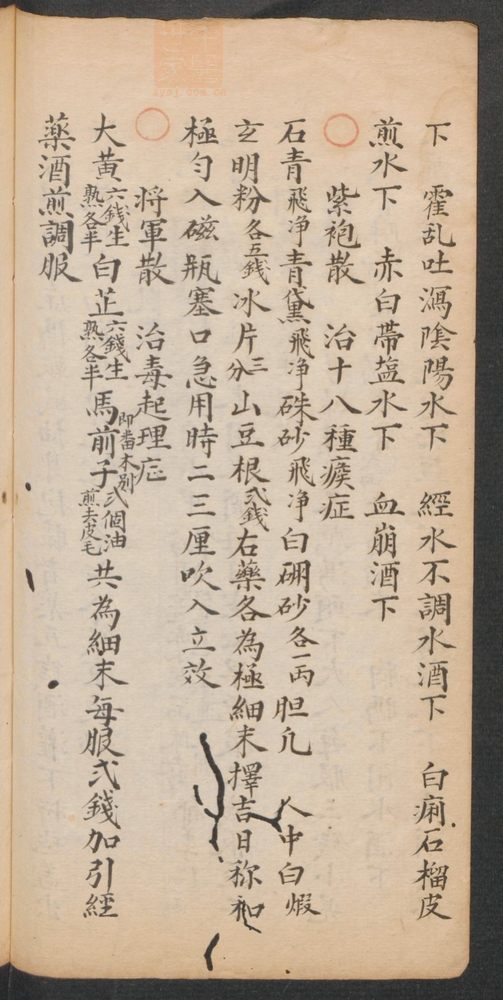 下　霍乱吐瀉陰陽水下　經水不調水酒下　白痢石榴皮
煎水下　赤白帶塩水下　血崩酒下
○　紫袍散　治十八種瘊症
石青飛净青黛飛净硃砂飛净白硼砂各一両胆凡　人中白煅
玄明粉各五錢冰片三分山豆根弍錢右藥各為極細末擇吉日称和
極匀入磁瓶塞口急用時二三厘吹入立效
○　将軍散　治毒起理症
大黄六錢生熟各半白芷六錢生熟各半馬前子即畨木别弍個油煎去皮毛共為細末每服弍錢加引經
藥酒煎調服